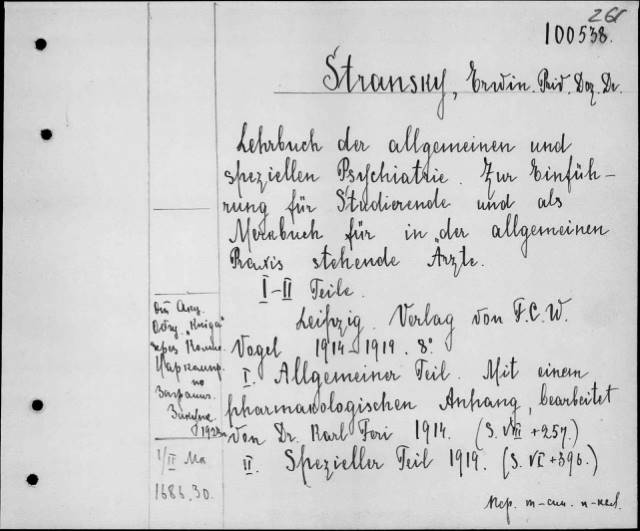 261
100538.
Stransky, Erwin. Priv. Doz. Dr.
Lehrbuch der allgemeinen und
speziellen Psychiatrie. Zur Einfüh-
rung für Studierende und als
Merkbuch für in der allgemeinen
Praxis stehende Ärzte.
I-II Teile.
Leipzig. Verlag von F.C.W.
Vogel 1914-1919. 8°.
I. Allgemeiner Teil. Mit einem
pharmakologischen Anhang, bearbeitet
von Dr. Karl Feri 1914. (S. VIII + 257.)
II. Spezieller Teil 1919. (S. VI + 396.)
От Акц.
Общ. "Книга"
через Комис.
по
Загранич.
Закупке
1923
I/II Ma
1686.30.
Пер.